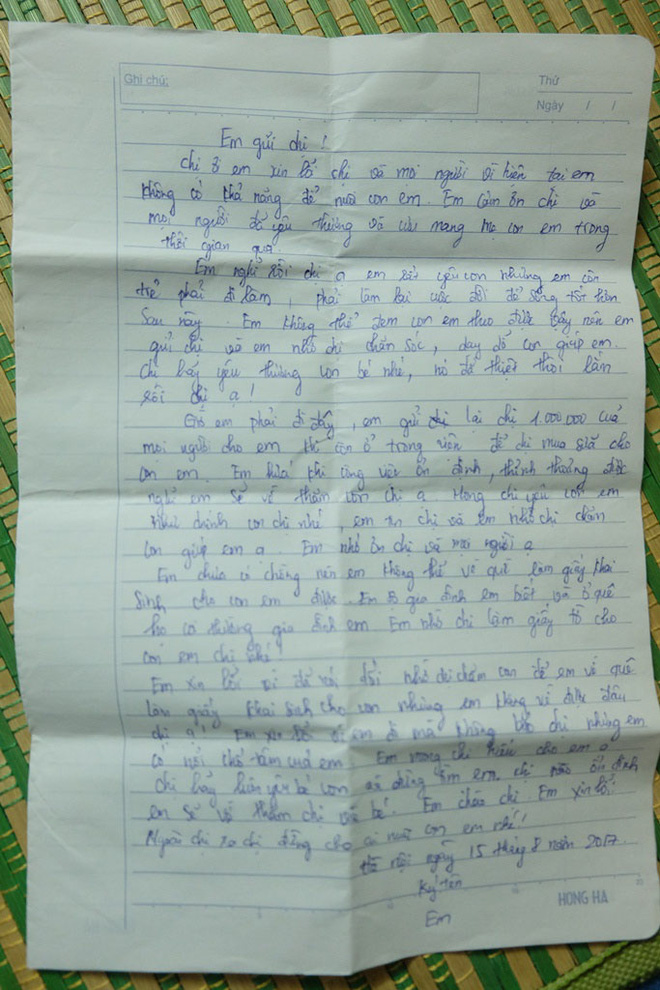 Ghi chú:
Thứ
Ngày / /
Em gửi chị !
Chị ơi em xin lỗi chị và mọi người vì hiện tại em
không có khả năng để nuôi con em. Em cảm ơn chị và
mọi người đã yêu thương và cưu mang mẹ con em trong
thời gian qua.
Em nghĩ rồi chị ạ em rất yêu con nhưng em còn
trẻ phải đi làm, phải làm lại cuộc đời để sống tốt hơn
sau này. Em không thể đem con em theo được vậy nên em
gửi chị và em nhờ chị chăm sóc, dạy dỗ con giúp em.
Chị hãy yêu thương con bé nhé, nó đã thiệt thòi lắm
rồi chị ạ!
Giờ em phải đi đây, em gửi lại chị 1.000.000 của
mọi người cho em khi còn ở trong viện để chị mua sữa cho
con em. Em hứa khi công việc ổn định, thỉnh thoảng được
nghỉ em sẽ về thăm con chị ạ. Mong chị yêu con em
như chính con chị nhé, em tin chị và em nhờ chị chăm
con giúp em ạ. Em nhớ ơn chị và mọi người ạ
Em chưa có chồng nên em không thể về quê làm giấy khai
sinh cho con em được. Em sợ gia đình em biết và ở quê
gia đình em Em nhờ chị làm giấy tờ cho
con em chị nhé!
Em xin lỗi vì đã nói dối nhờ chị chăm con để em về quê
làm giấy khai sinh cho con nhưng em không về được đâu
chị ạ! Em xin lỗi vì em đi mà không bảo chị nhưng em
có nỗi khổ tâm của em. Em mong chị hiểu cho em ạ
Chị hãy bé con và đừng tìm em, chị nào ổn định
em sẽ về thăm chị và bé. Em chào chị. Em xin lỗi!
Ngoài chị ra chị đừng cho ai nuôi con em nhé!
Hà nội ngày 15 tháng 8 năm 2017.
Ký tên
Em
HONG HA